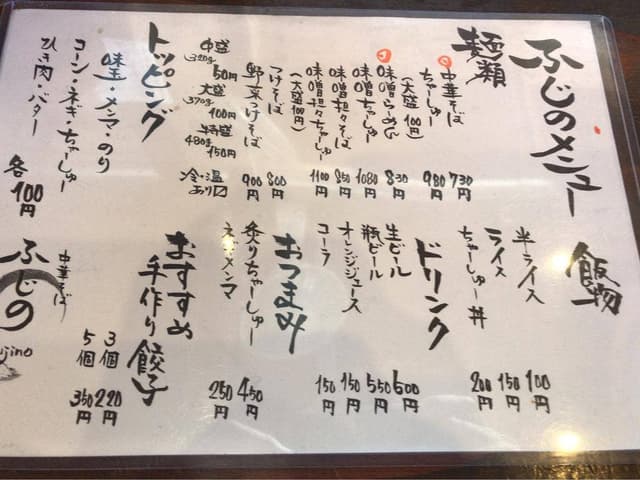 ふじのメニュー
麺類
中華そば 730円
ちゃーしゅー 980円
(大盛100円)
味噌らーめん 830円
味噌ちゃーしゅー 1080円
味噌担々そば 850円
味噌担々ちゃーしゅー 1100円
(大盛100円)
つけそば 800円
野菜つけそば 900円
冷・温あり〼
中盛 320g 50円
大盛 370g 100円
特盛 480g 150円
トッピング
味玉・メンマ・のり
コーン・ネギ・ちゃーしゅー
ひき肉・バター
各100円
飯物
半ライス 100円
ライス 150円
ちゃーしゅー丼 200円
ドリンク
生ビール 600円
瓶ビール 550円
オレンジジュース 150円
コーラ 150円
おつまみ
炙りちゃーしゅー 450円
ネギメンマ 250円
おすすめ
手作り餃子
3個 220円
5個 350円
中華そば
ふじの
ujino